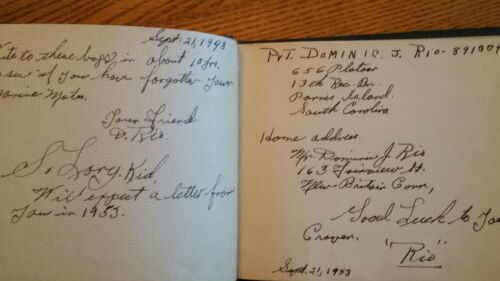 Sept. 21, 1943
to these boys in about 10 yrs.
see if you have forgotten your
Marine Mates.
Your Friend
D. Rio.
So Long Kid,
Will expect a letter from
You in 1953.
Pvt. Dominic. J. Rio - 891009
656 Platoon
13th Rec. Bn.
Parris Island.
South Carolina
Home address.
Mr Dominic J Rio
163 Fairview St.
New Britain Conn,
Good Luck to You
Craven.
"Rio"
Sept. 21, 1943